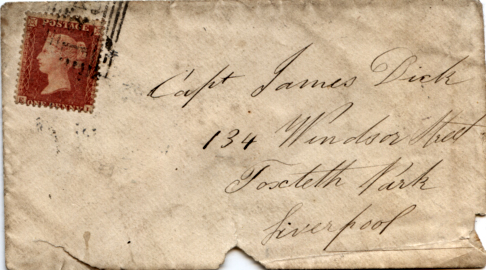 POSTAGE
Capt James Dick
134 Windsor Street
Toxteth Park
Liverpool